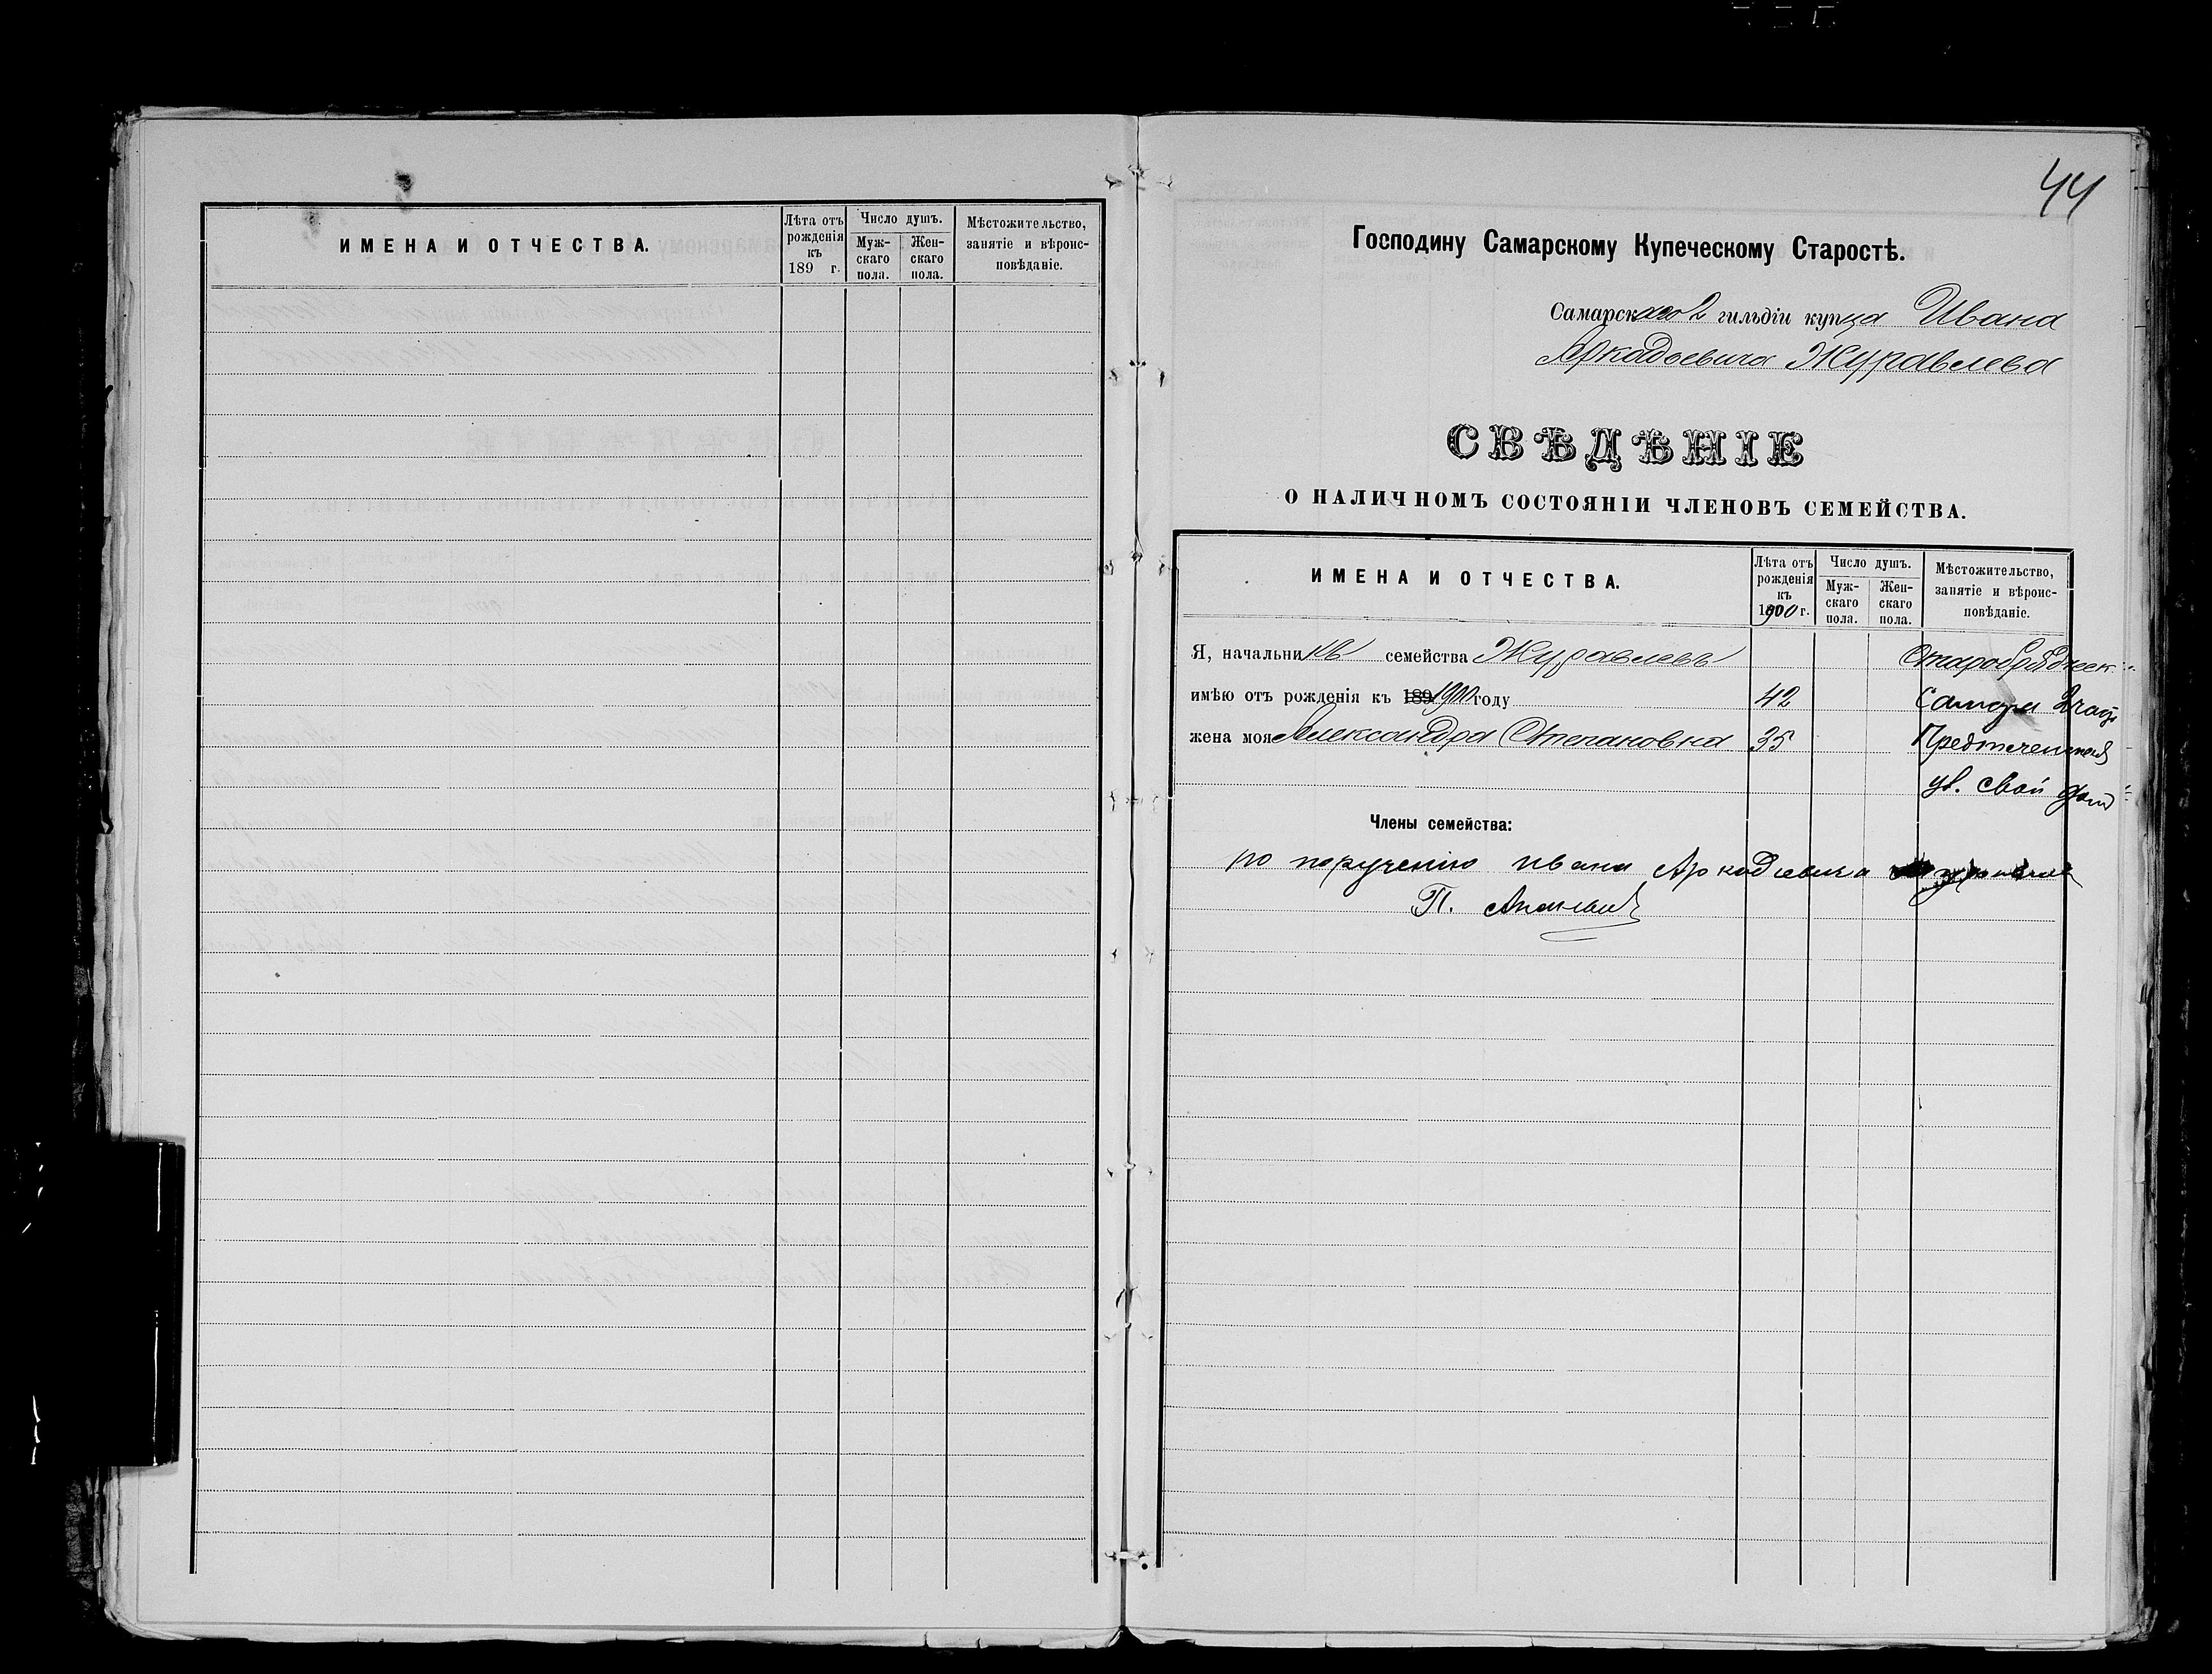 ИМЕНА И ОТЧЕСТВА.
Лѣта отъ рожденія къ 189 г.
Число душъ.
Муж-скаго пола.
Жен-скаго пола.
Мѣстожительство, занятіе и вѣроис-повѣданіе.
44
Господину Самарскому Купеческому Старостѣ.
Самарскаго 2 гильдіи купца Ивана
Аркадьевича Журавлева
СВѢДѢНІЕ
О НАЛИЧНОМЪ СОСТОЯНІИ ЧЛЕНОВЪ СЕМЕЙСТВА.
ИМЕНА И ОТЧЕСТВА.
Лѣта отъ рожденія къ 1900 г.
Число душъ.
Муж-скаго пола.
Жен-скаго пола.
Мѣстожительство, занятіе и вѣроис-повѣданіе.
Я, начальникъ семейства Журавлевъ
имѣю отъ рожденія къ 189 1900 году 42 Самара 2 час
жена моя Александра Степановна 35 Предтеченская
ул. свой домъ
Члены семейства:
по порученію Ивана Аркадіевича
П.